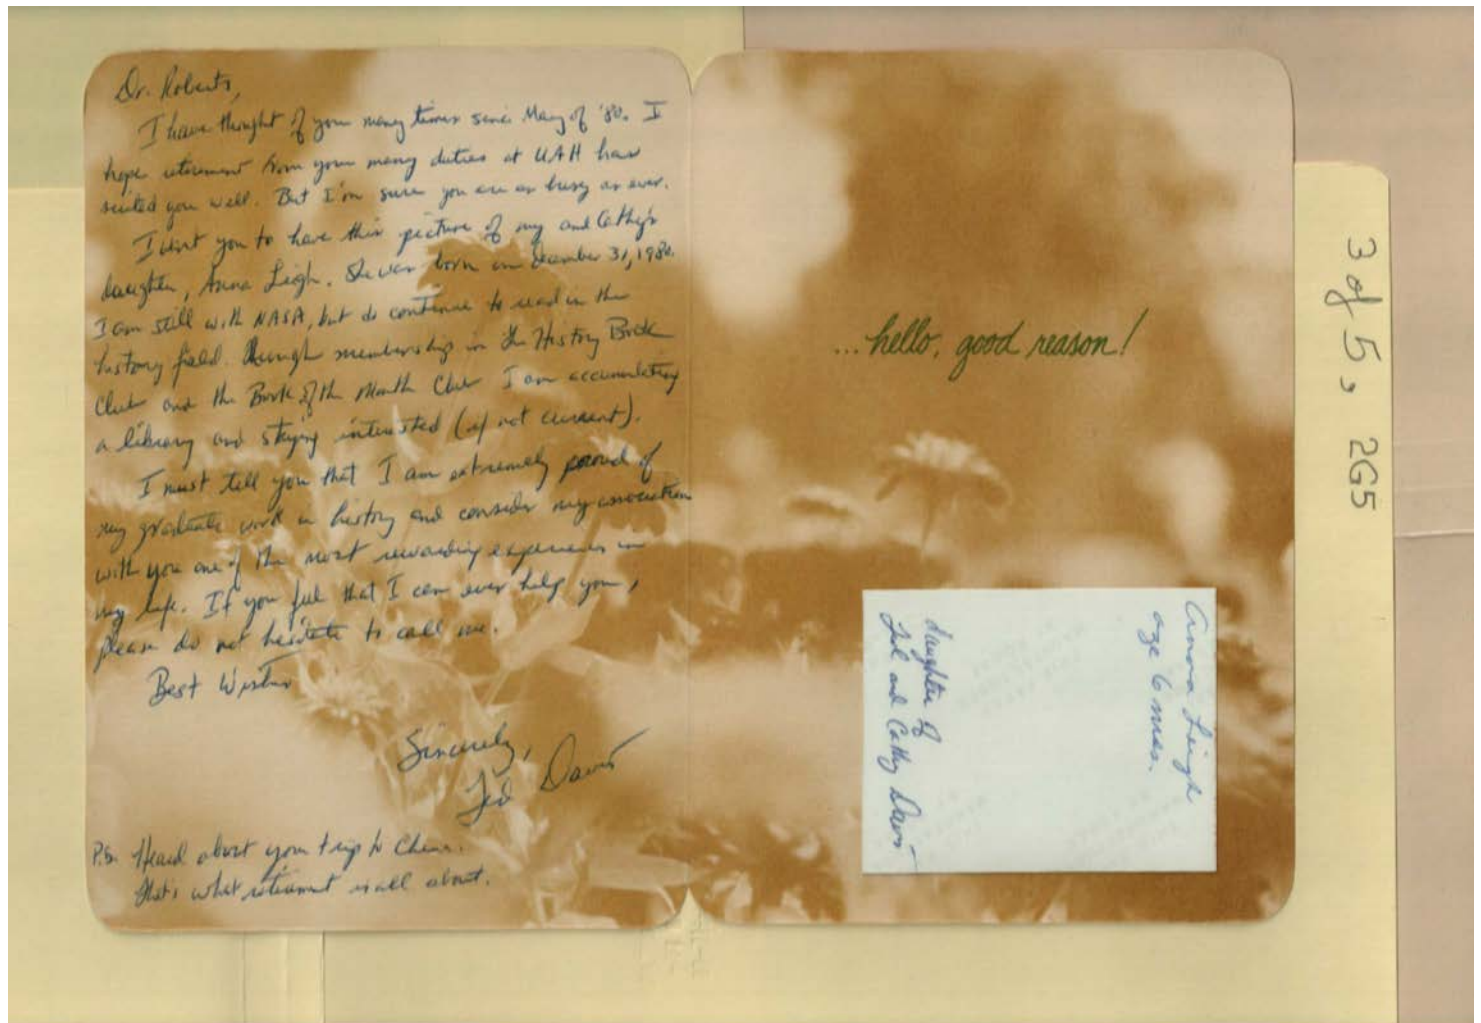 Dr. Roberts,
I have thought of you many times since May of '80. I
hope retirement from your many duties at UAH has
suited you well. But I'm sure you are as busy as ever.
I want you to have this picture of my and Cathy's
daughter, Anna Leigh. She was born on December 31, 1980.
I am still with NASA, but do continue to read in the
history field. Through membership in the History Book
Club and the Book of the Month Club I am accumulating
a library and staying interested (if not current).
I must tell you that I am extremely proud of
my graduate work in history and consider my association
with you one of the most rewarding experiences in
my life. If you feel that I can ever help you,
please do not hesitate to call me.
Best Wishes
Sincerely,
Ted Davis
P.S. Heard about your trip to China.
That's what retirement is all about.
...hello, good reason!
Anna Leigh
age 6 mos.
daughter of
Ted and Cathy Davis
3 of 5, 2G5